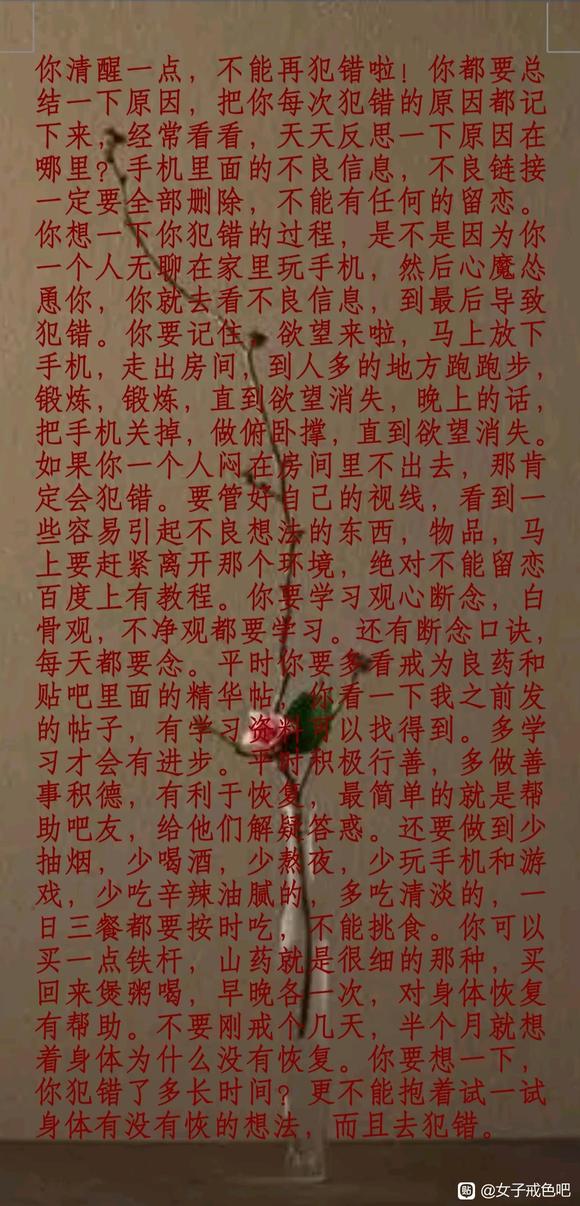 你清醒一点，不能再犯错啦！你都要总
结一下原因，把你每次犯错的原因都记
下来，经常看看，天天反思一下原因在
哪里？手机里面的不良信息，不良链接
一定要全部删除，不能有任何的留恋。
你想一下你犯错的过程，是不是因为你
一个人无聊在家里玩手机，然后心魔怂
恿你，你就去看不良信息，到最后导致
犯错。你要记住，欲望来啦，马上放下
手机，走出房间，到人多的地方跑跑步，
锻炼，锻炼，直到欲望消失，晚上的话，
把手机关掉，做俯卧撑，直到欲望消失。
如果你一个人闷在房间里不出去，那肯
定会犯错。要管好自己的视线，看到一
些容易引起不良想法的东西，物品，马
上要赶紧离开那个环境，绝对不能留恋
百度上有教程。你要学习观心断念，白
骨观，不净观都要学习。还有断念口诀，
每天都要念。平时你要多看戒为良药和
贴吧里面的精华帖，你看一下我之前发
的帖子，有学习资料可以找得到。多学
习才会有进步。平时积极行善，多做善
事积德，有利于恢复，最简单的就是帮
助吧友，给他们解疑答惑。还要做到少
抽烟，少喝酒，少熬夜，少玩手机和游
戏，少吃辛辣油腻的，多吃清淡的，一
日三餐都要按时吃，不能挑食。你可以
买一点铁杆，山药就是很细的那种，买
回来煲粥喝，早晚各一次，对身体恢复
有帮助。不要刚戒个几天，半个月就想
着身体为什么没有恢复。你要想一下，
你犯错了多长时间？更不能抱着试一试
身体有没有恢的想法，而且去犯错。
贴 @女子戒色吧